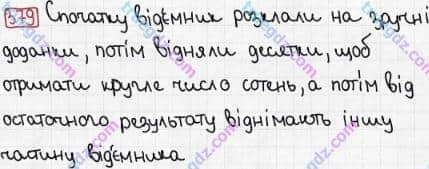 379 Спочатку від'ємник розклали на зручні
доданки, потім відняли десятки, щоб
отримати кругле число сотень, а потім від
остаточного результату віднімають іншу
частину від'ємника